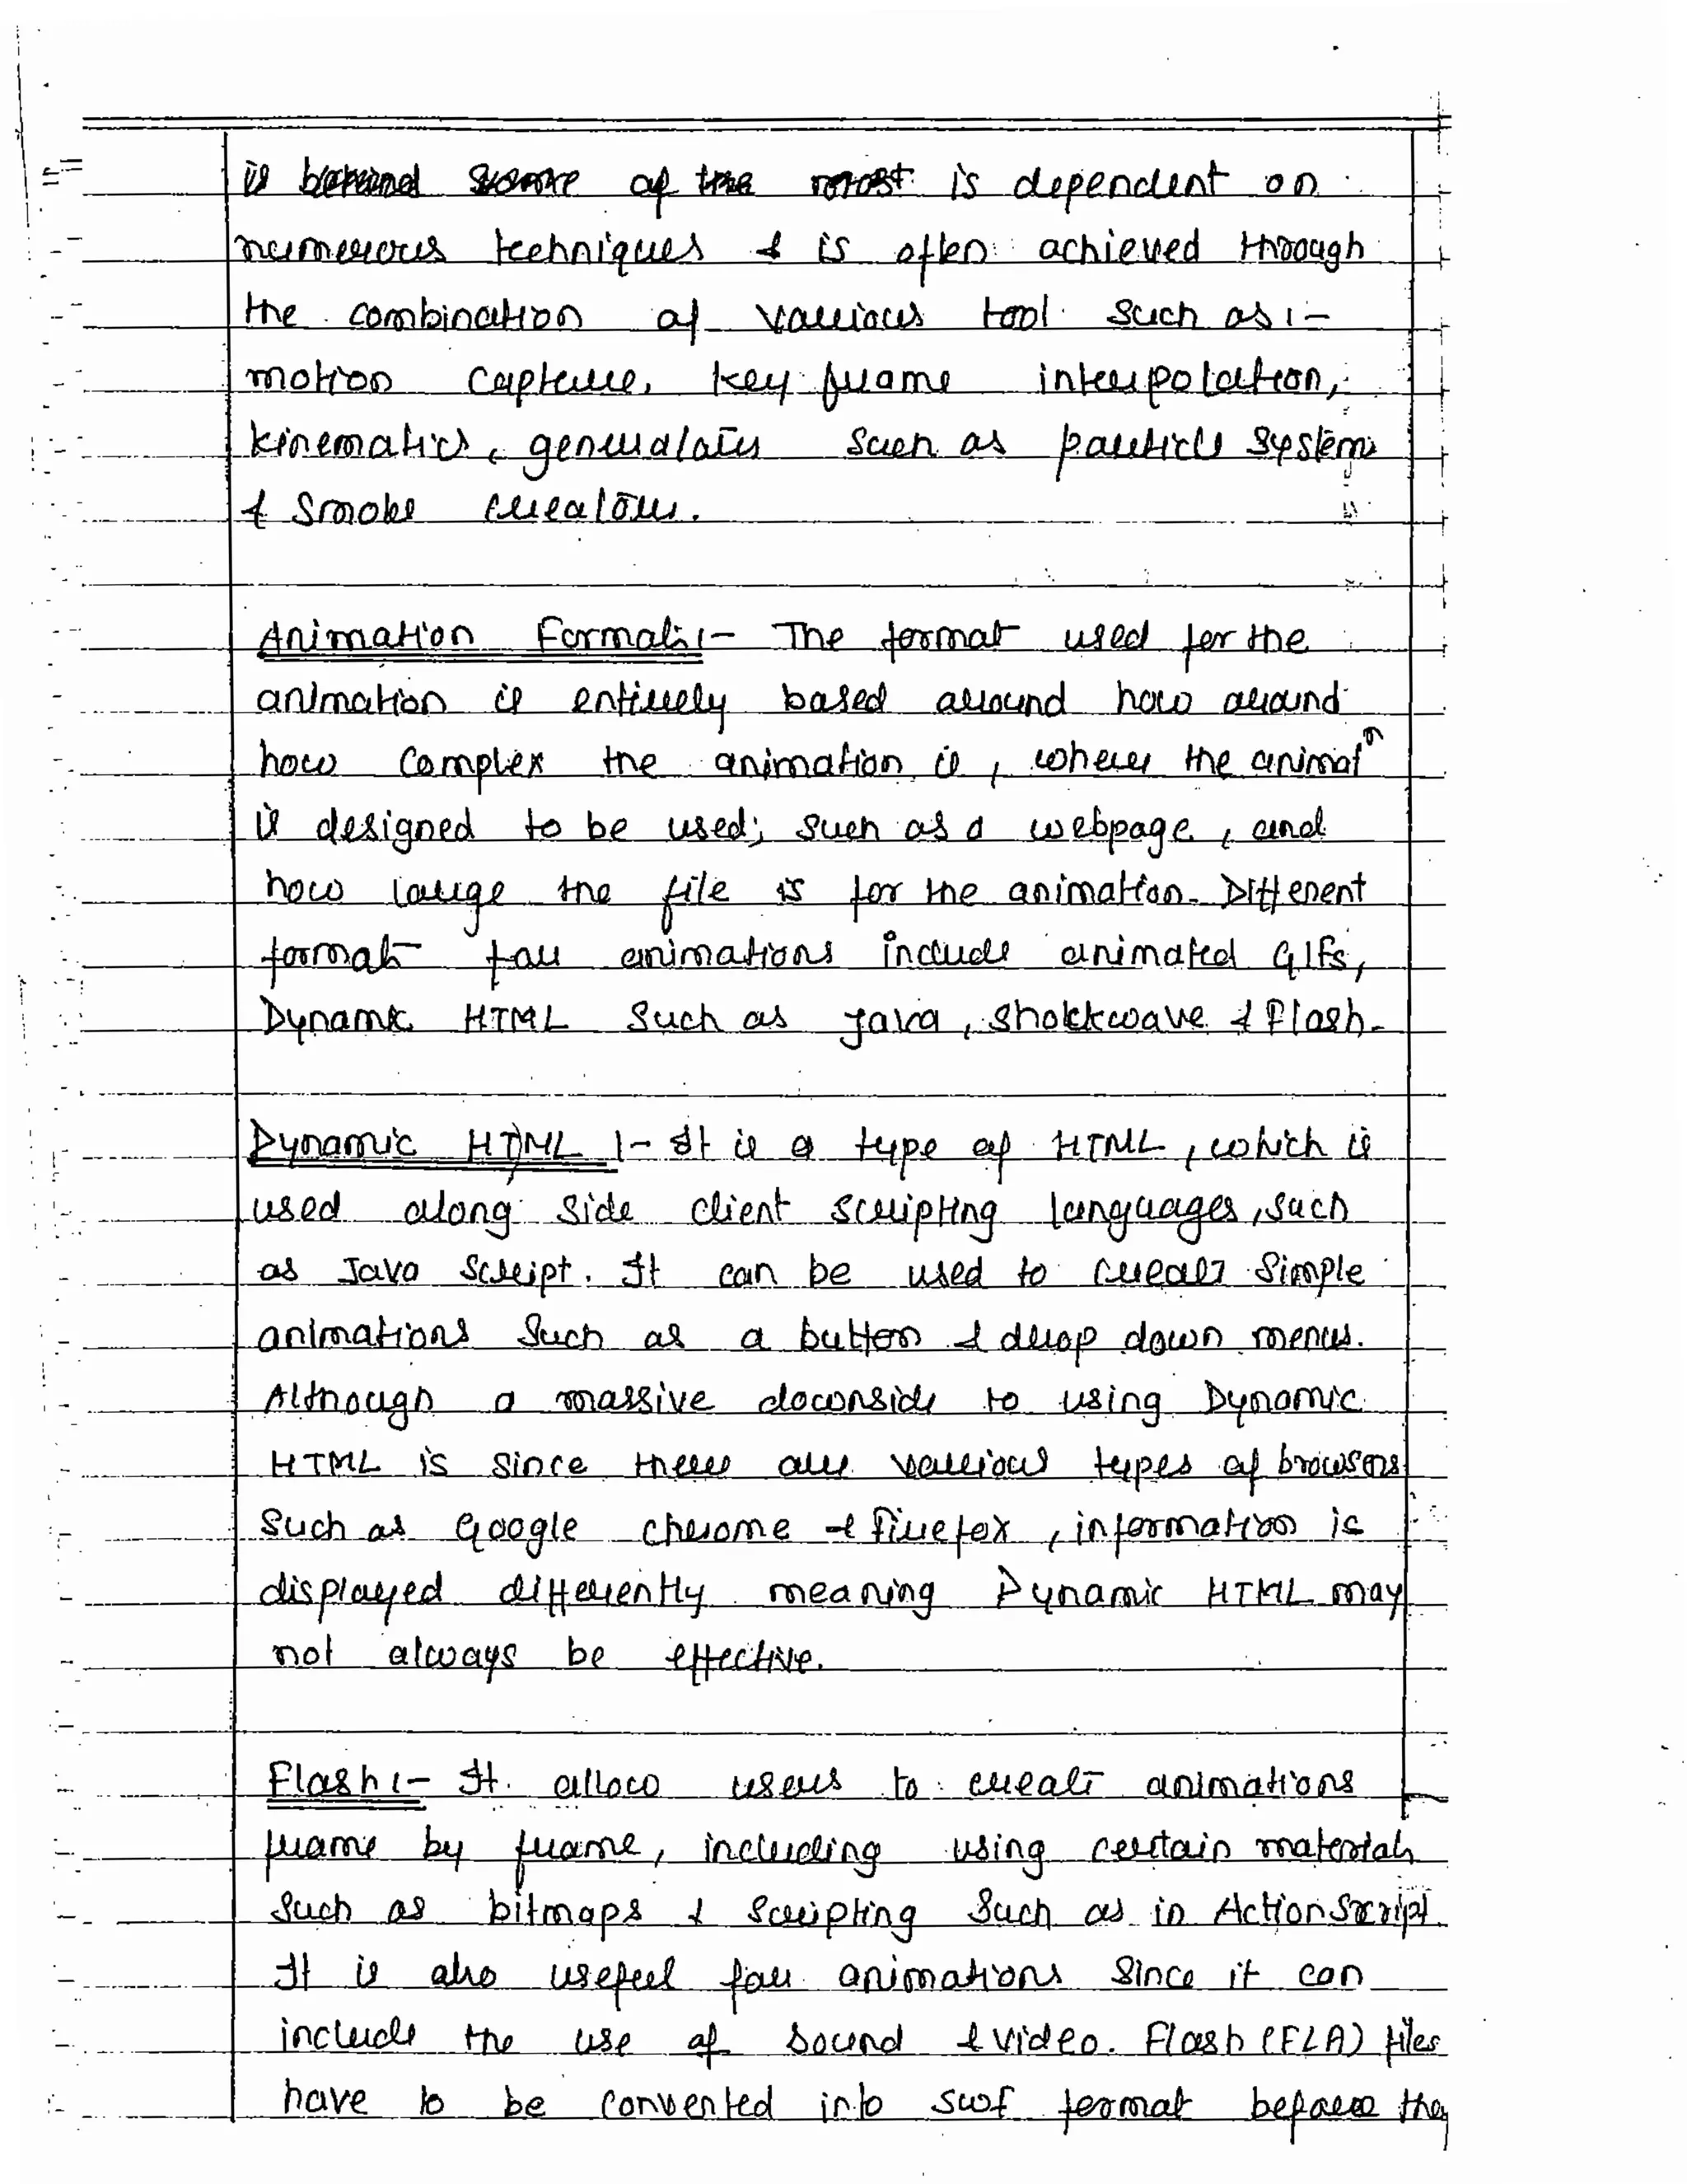 is behind some of the most is dependent on
numerous techniques & is often achieved through
the combination of various tool such as :-
motion capture, key frame interpolation,
kinematics, generalators such as particle systems
& smoke creators.
Animation Formats :- The format used for the
animation is entirely based around how around
how complex the animation is, where the animatn
is designed to be used; such as a webpage, and
how large the file is for the animation. Different
formats for animations include animated GIFs,
Dynamic HTML such as Java, Shockwave & Flash.
Dynamic HTML :- It is a type of HTML, which is
used along side client scripting languages, such
as Java Script. It can be used to create simple
animations such as a button & drop down menus.
Although a massive downside to using Dynamic
HTML is since there are various types of browsers
such as Google chrome & firefox, information is
displayed differently meaning Dynamic HTML may
not always be effective.
Flash :- It allow users to create animations
frame by frame, including using certain materials
such as bitmaps & scripting such as in ActionScript.
It is also useful for animations since it can
include the use of sound & video. Flash (FLA) files
have to be converted into swf format before they